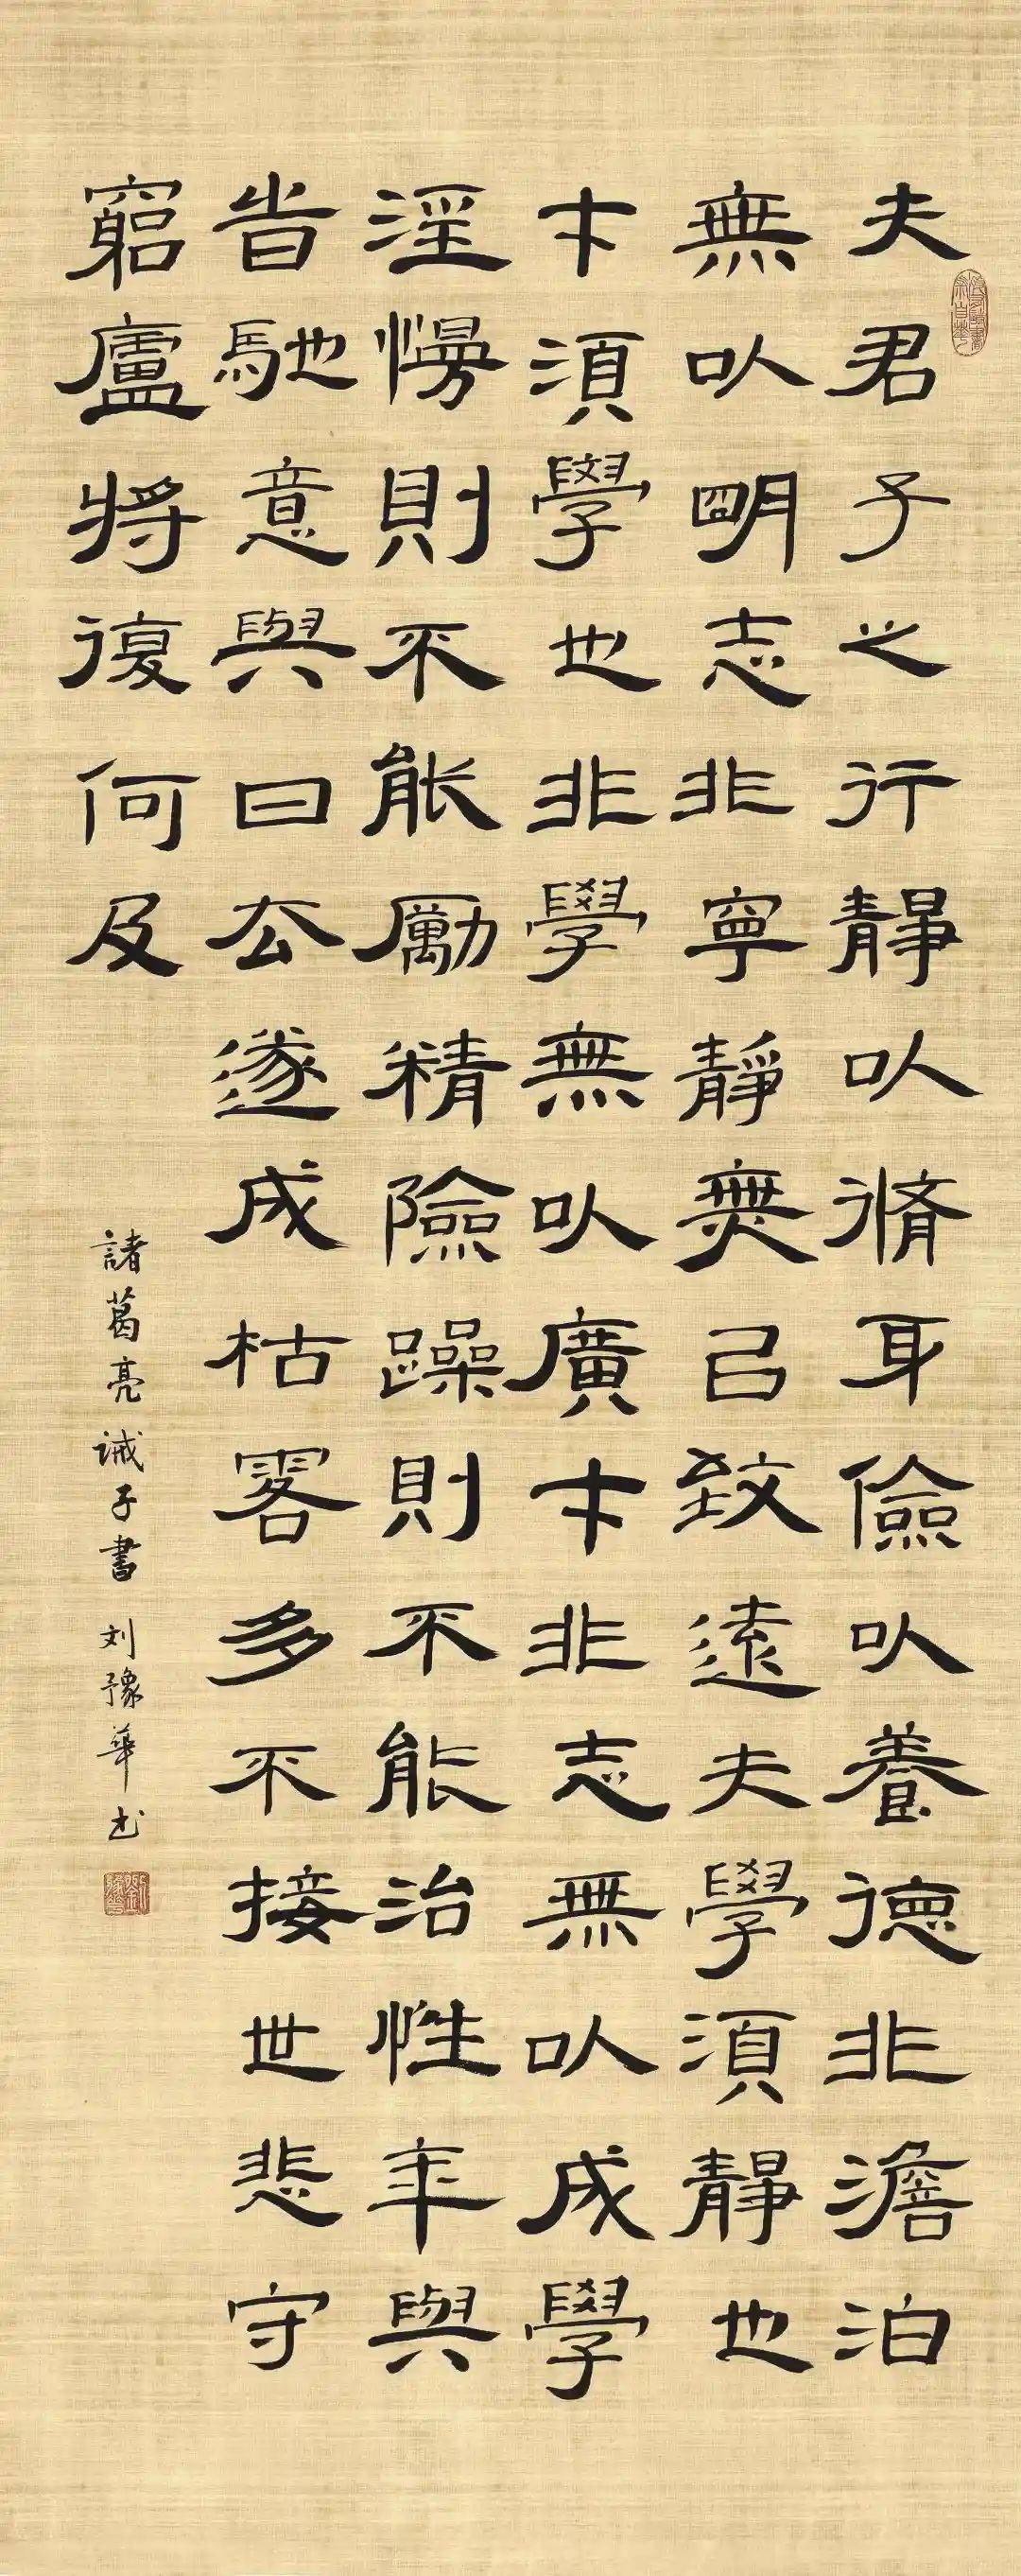 夫君子之行靜以脩身儉以養德非澹泊
無以明志非寧靜無以致遠夫學須靜也
才須學也非學無以廣才非志無以成學
淫慢則不能勵精險躁則不能治性年與
旹馳意與日去遂成枯落多不接世悲守
窮廬將復何及
諸葛亮誡子書 刘豫華书